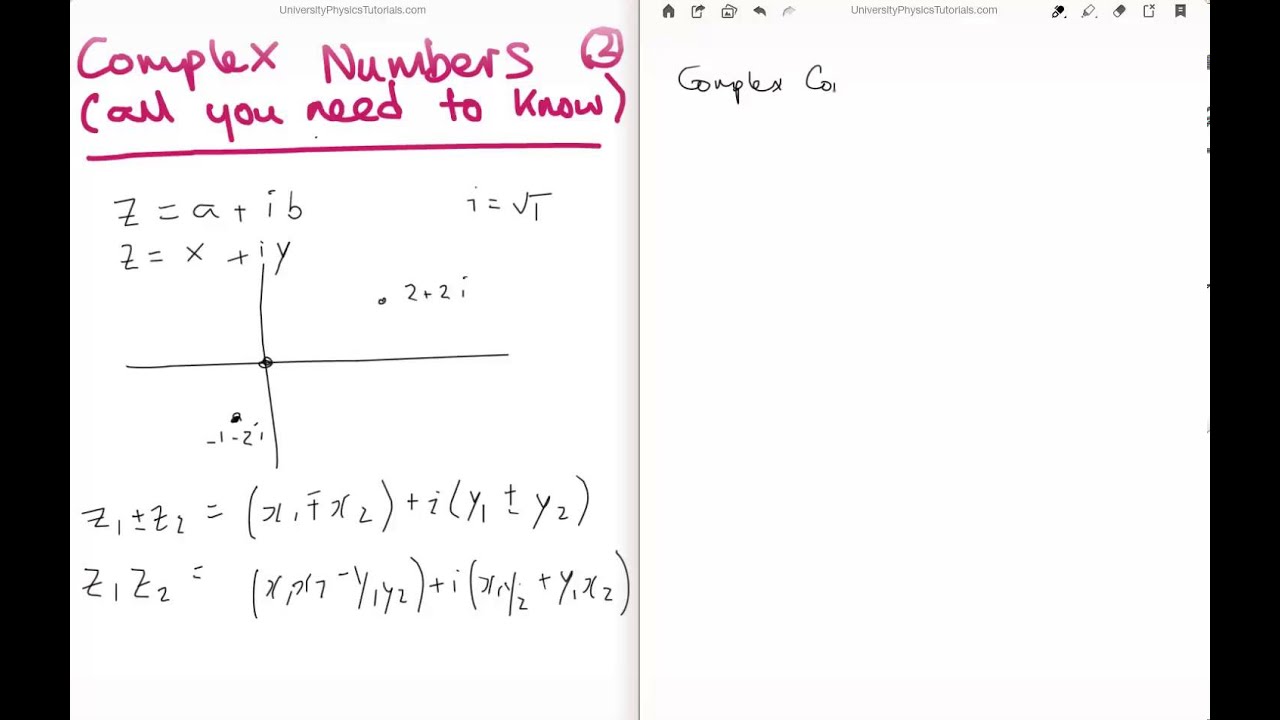 UniversityPhysicsTutorials.com
Complex Numbers ②
(all you need to know)
z = a + i b
i = √1
z = x + i y
2 + 2 i
-1 - 2 i
z₁ ± z₂ = (x₁ ∓ x₂) + i (y₁ ± y₂)
z₁ z₂ = (x₁x₂ - y₁y₂) + i (x₁y₂ + y₁x₂)
UniversityPhysicsTutorials.com
Complex Co